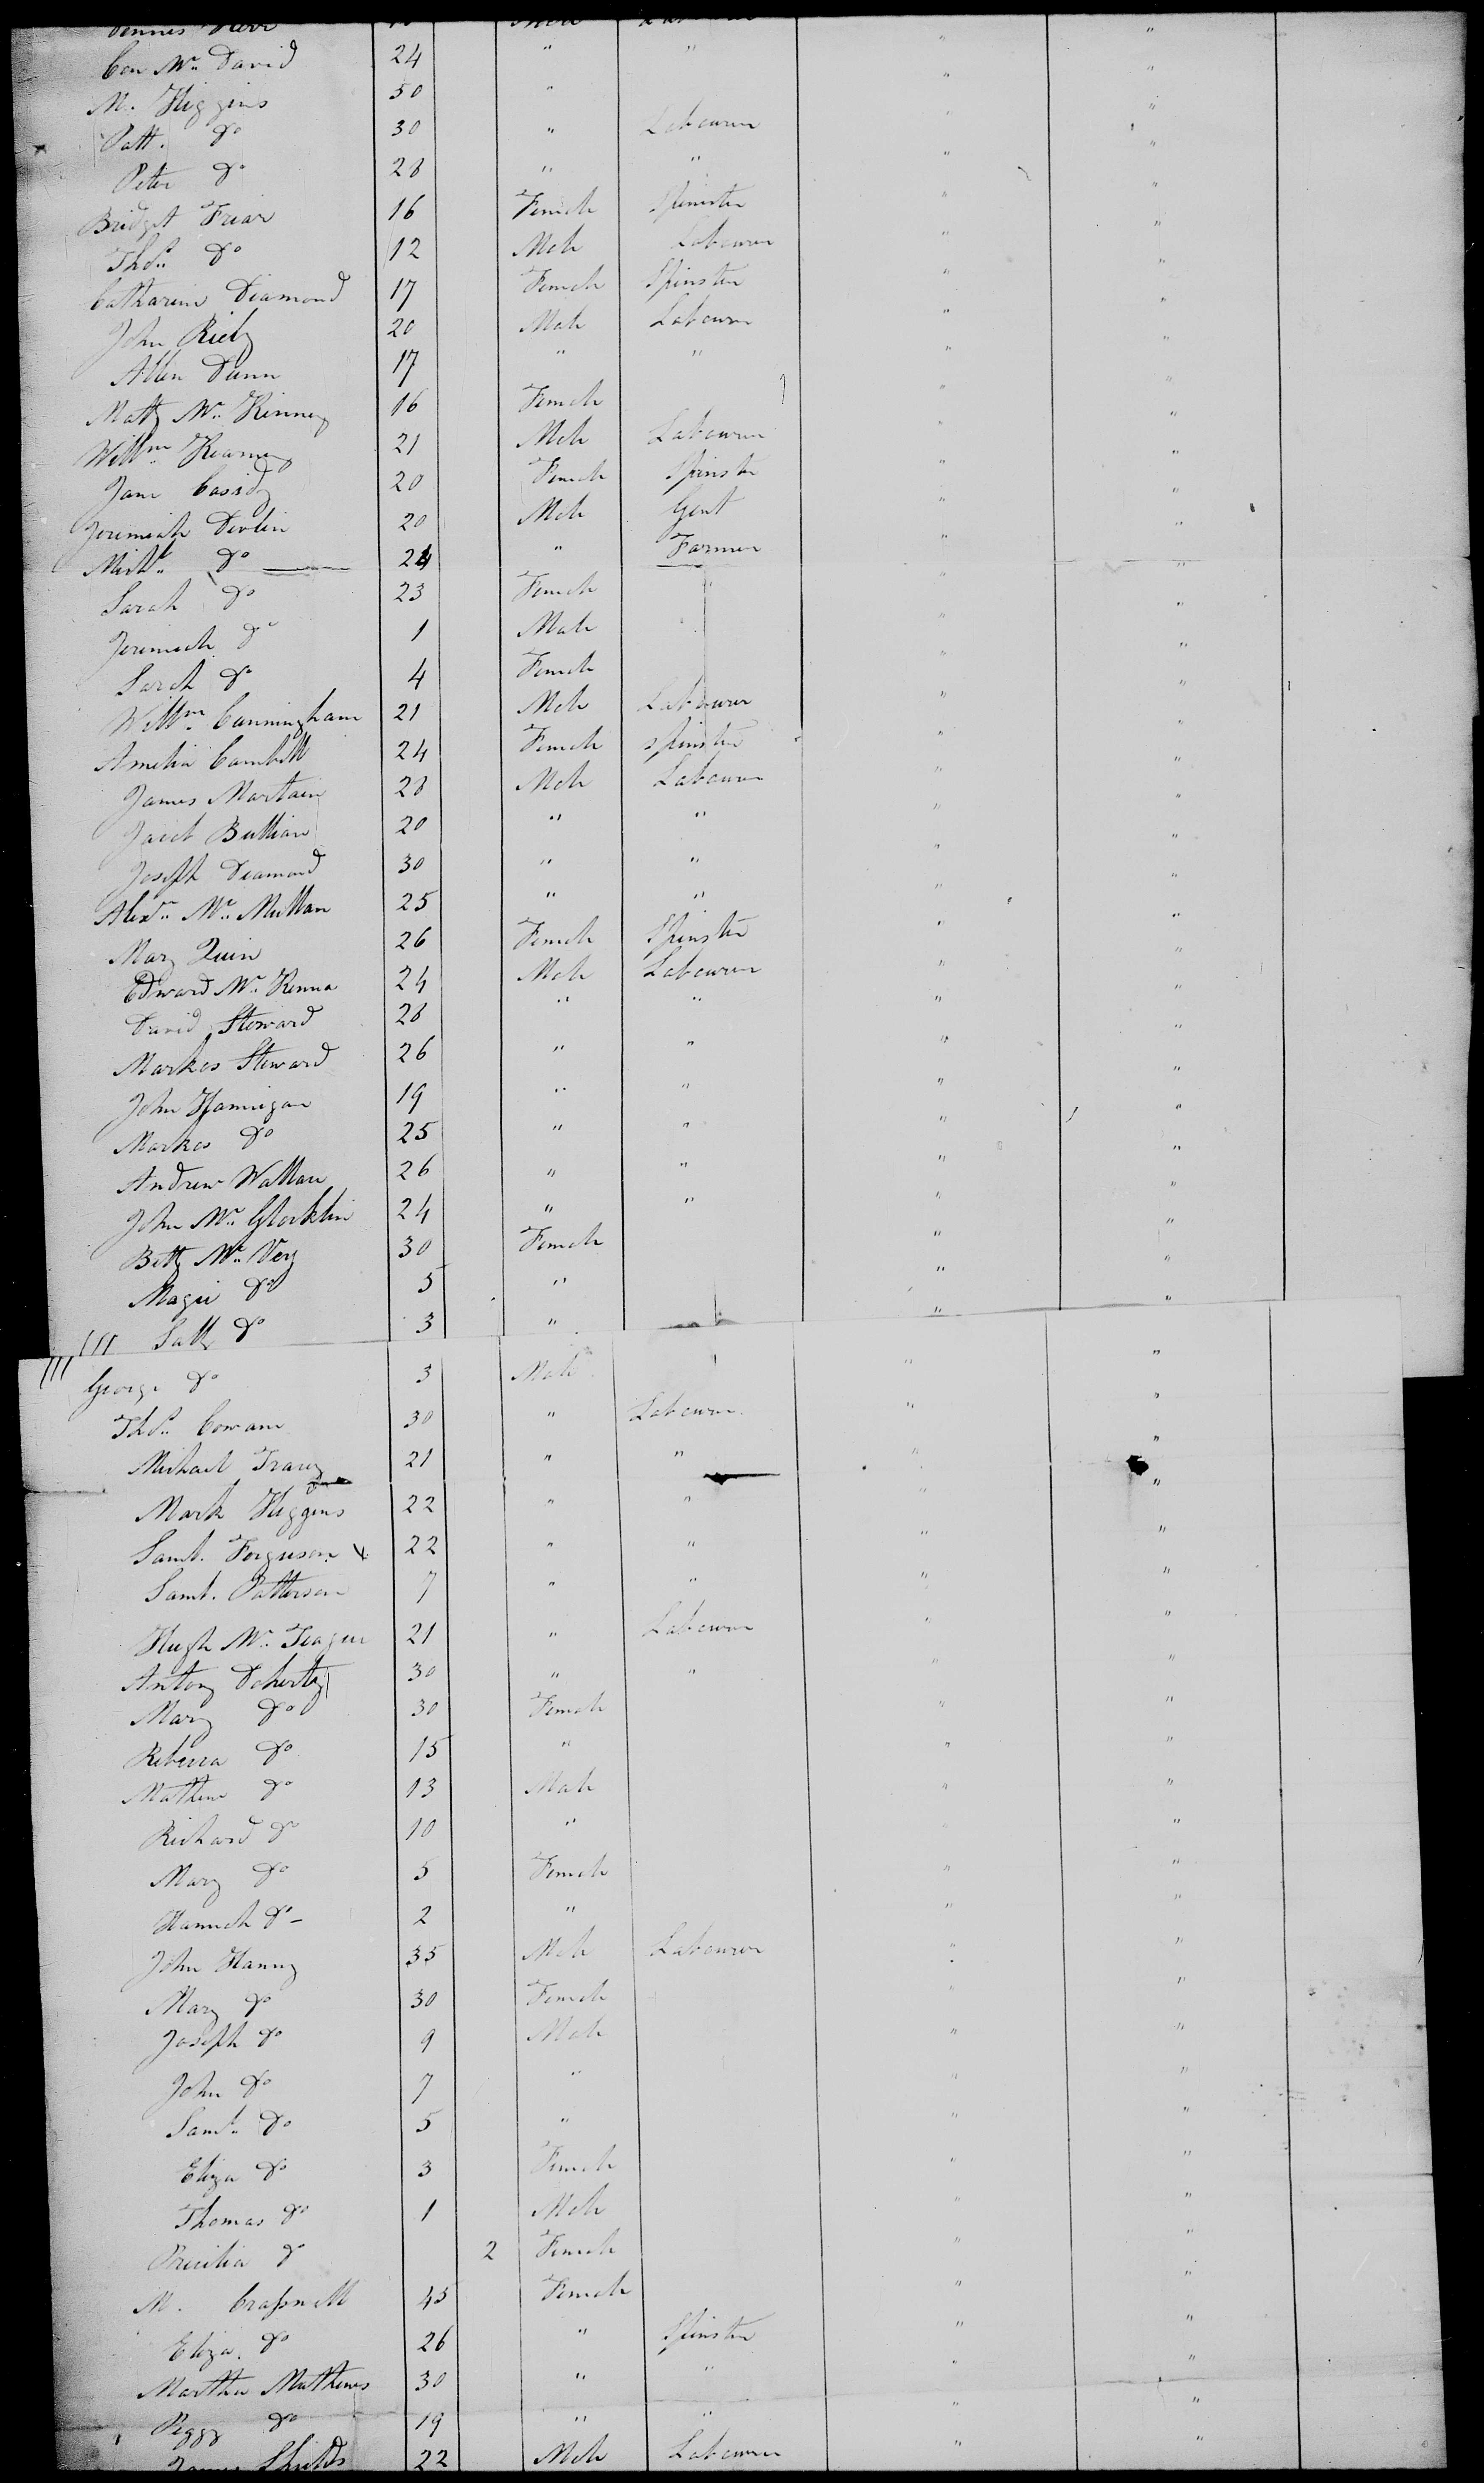 Con Mc. David 24 " " " "
M. Higgins 50 " " "
Patt. Do 30 " Labourer " "
Peter Do 28 " " " "
Bridget Friar 16 Female Spinster " "
Thos. Do 12 Male Labourer " "
Catharine Diamond 17 Female Spinster " "
John Riely 20 Male Labourer " "
Allen Dunn 17 " " " "
Matty Mc. Kinney 16 Female " "
Willm. Kearney 21 Male Labourer " "
Jane Casidy 20 Female Spinster " "
Jeremiah Devlin 20 Male Gent " "
Michl. Do 24 " Farmer "
Sarah Do 23 Female " " "
Jeremiah Do 1 Male " "
Sarah Do 4 Female " "
Willm. Cunningham 21 Male Labourer " "
Amelia Cambell 24 Female Spinster " "
James Martain 28 Male Labourer " "
Jacob 20 " " " "
Joseph Diamond 30 " " " "
Alexr. Mc. Mullan 25 " " " "
Mary Quin 26 Female Spinster " "
Edward Mc. Kenna 24 Male Labourer " "
David Steward 28 " " " "
Markes Steward 26 " " " "
John Hannigan 19 " " " "
Markes Do 25 " " " "
Andrew Wallace 26 " " " "
John Mc. Glocklin 24 " " " "
Betty Mc. Vey 30 Female " "
Magie Do 5 " " "
Sally Do 3 " " "
George Do 3 Male " "
Thos. Cowan 30 " Labourer " "
Michael Tracey 21 " " " "
Mark Higgins 22 " " " "
Saml. Forguson 22 " " " "
Saml. Patterson 7 " " " "
Hugh Mc. Teague 21 " Labourer " "
Antony Doherty 30 " " " "
Mary Do 30 Female " "
Rebecca Do 15 " " "
Mathew Do 13 Male " "
Richard Do 10 " " "
Mary Do 5 Female " "
Hannah Do 2 " " "
John Hanny 35 Male Labourer " "
Mary Do 30 Female " "
Joseph Do 9 Male " "
John Do 7 " " "
Saml. Do 5 " " "
Eliza Do 3 Female " "
Thomas Do 1 Male " "
Precilia Do 2 Female " "
M. 45 Female " "
Eliza. Do 26 " Spinster " "
Martha Mathews 30 " " " "
Peggy Do 19 " " " "
James Shields 22 Male Labourer " "